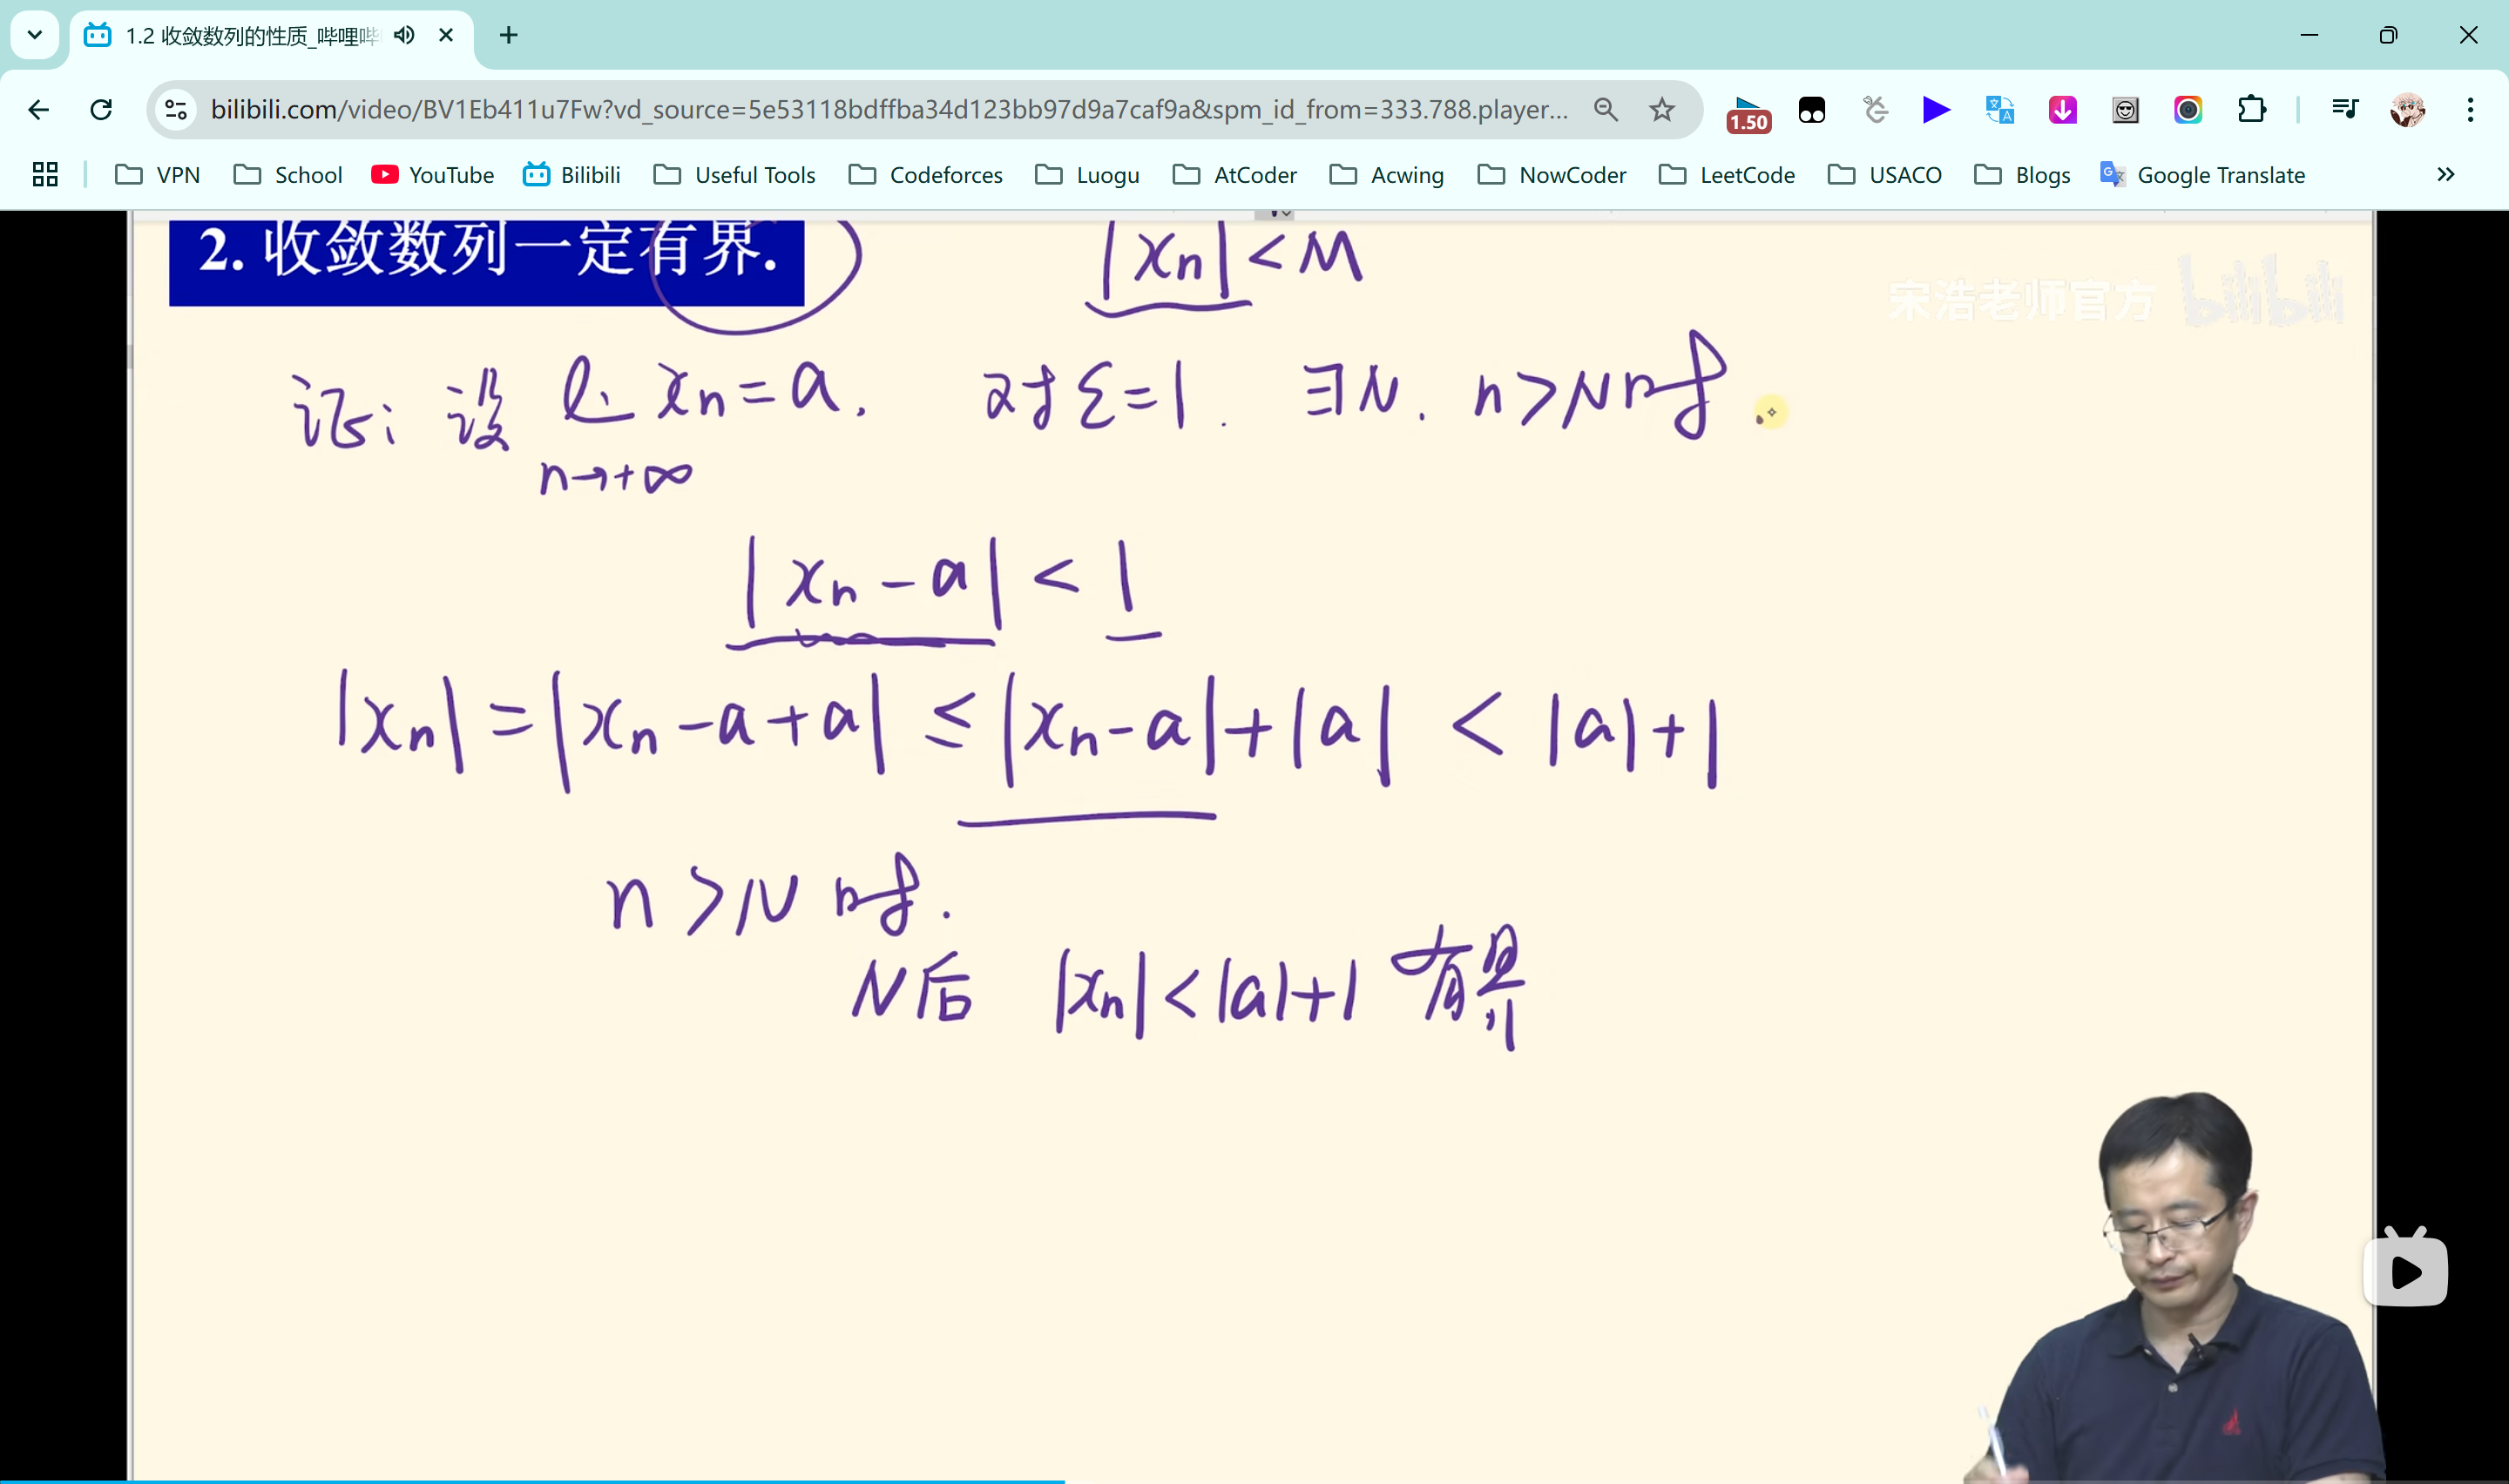 1.2 收敛数列的性质_哔哩哔
bilibili.com/video/BV1Eb411u7Fw?vd_source=5e53118bdffba34d123bb97d9a7caf9a&spm_id_from=333.788.player...
1.50
VPN School YouTube Bilibili Useful Tools Codeforces Luogu AtCoder Acwing NowCoder LeetCode USACO Blogs Google Translate
2. 收敛数列一定有界. |xn| < M
宋浩老师官方 bilibili
证: 设 lim xn = a. 对 ε=1. ∃N. n>N时
n→+∞
|xn - a| < 1
|xn| = |xn - a + a| ≤ |xn - a| + |a| < |a| + 1
n > N 时.
N后 |xn| < |a|+1 有界